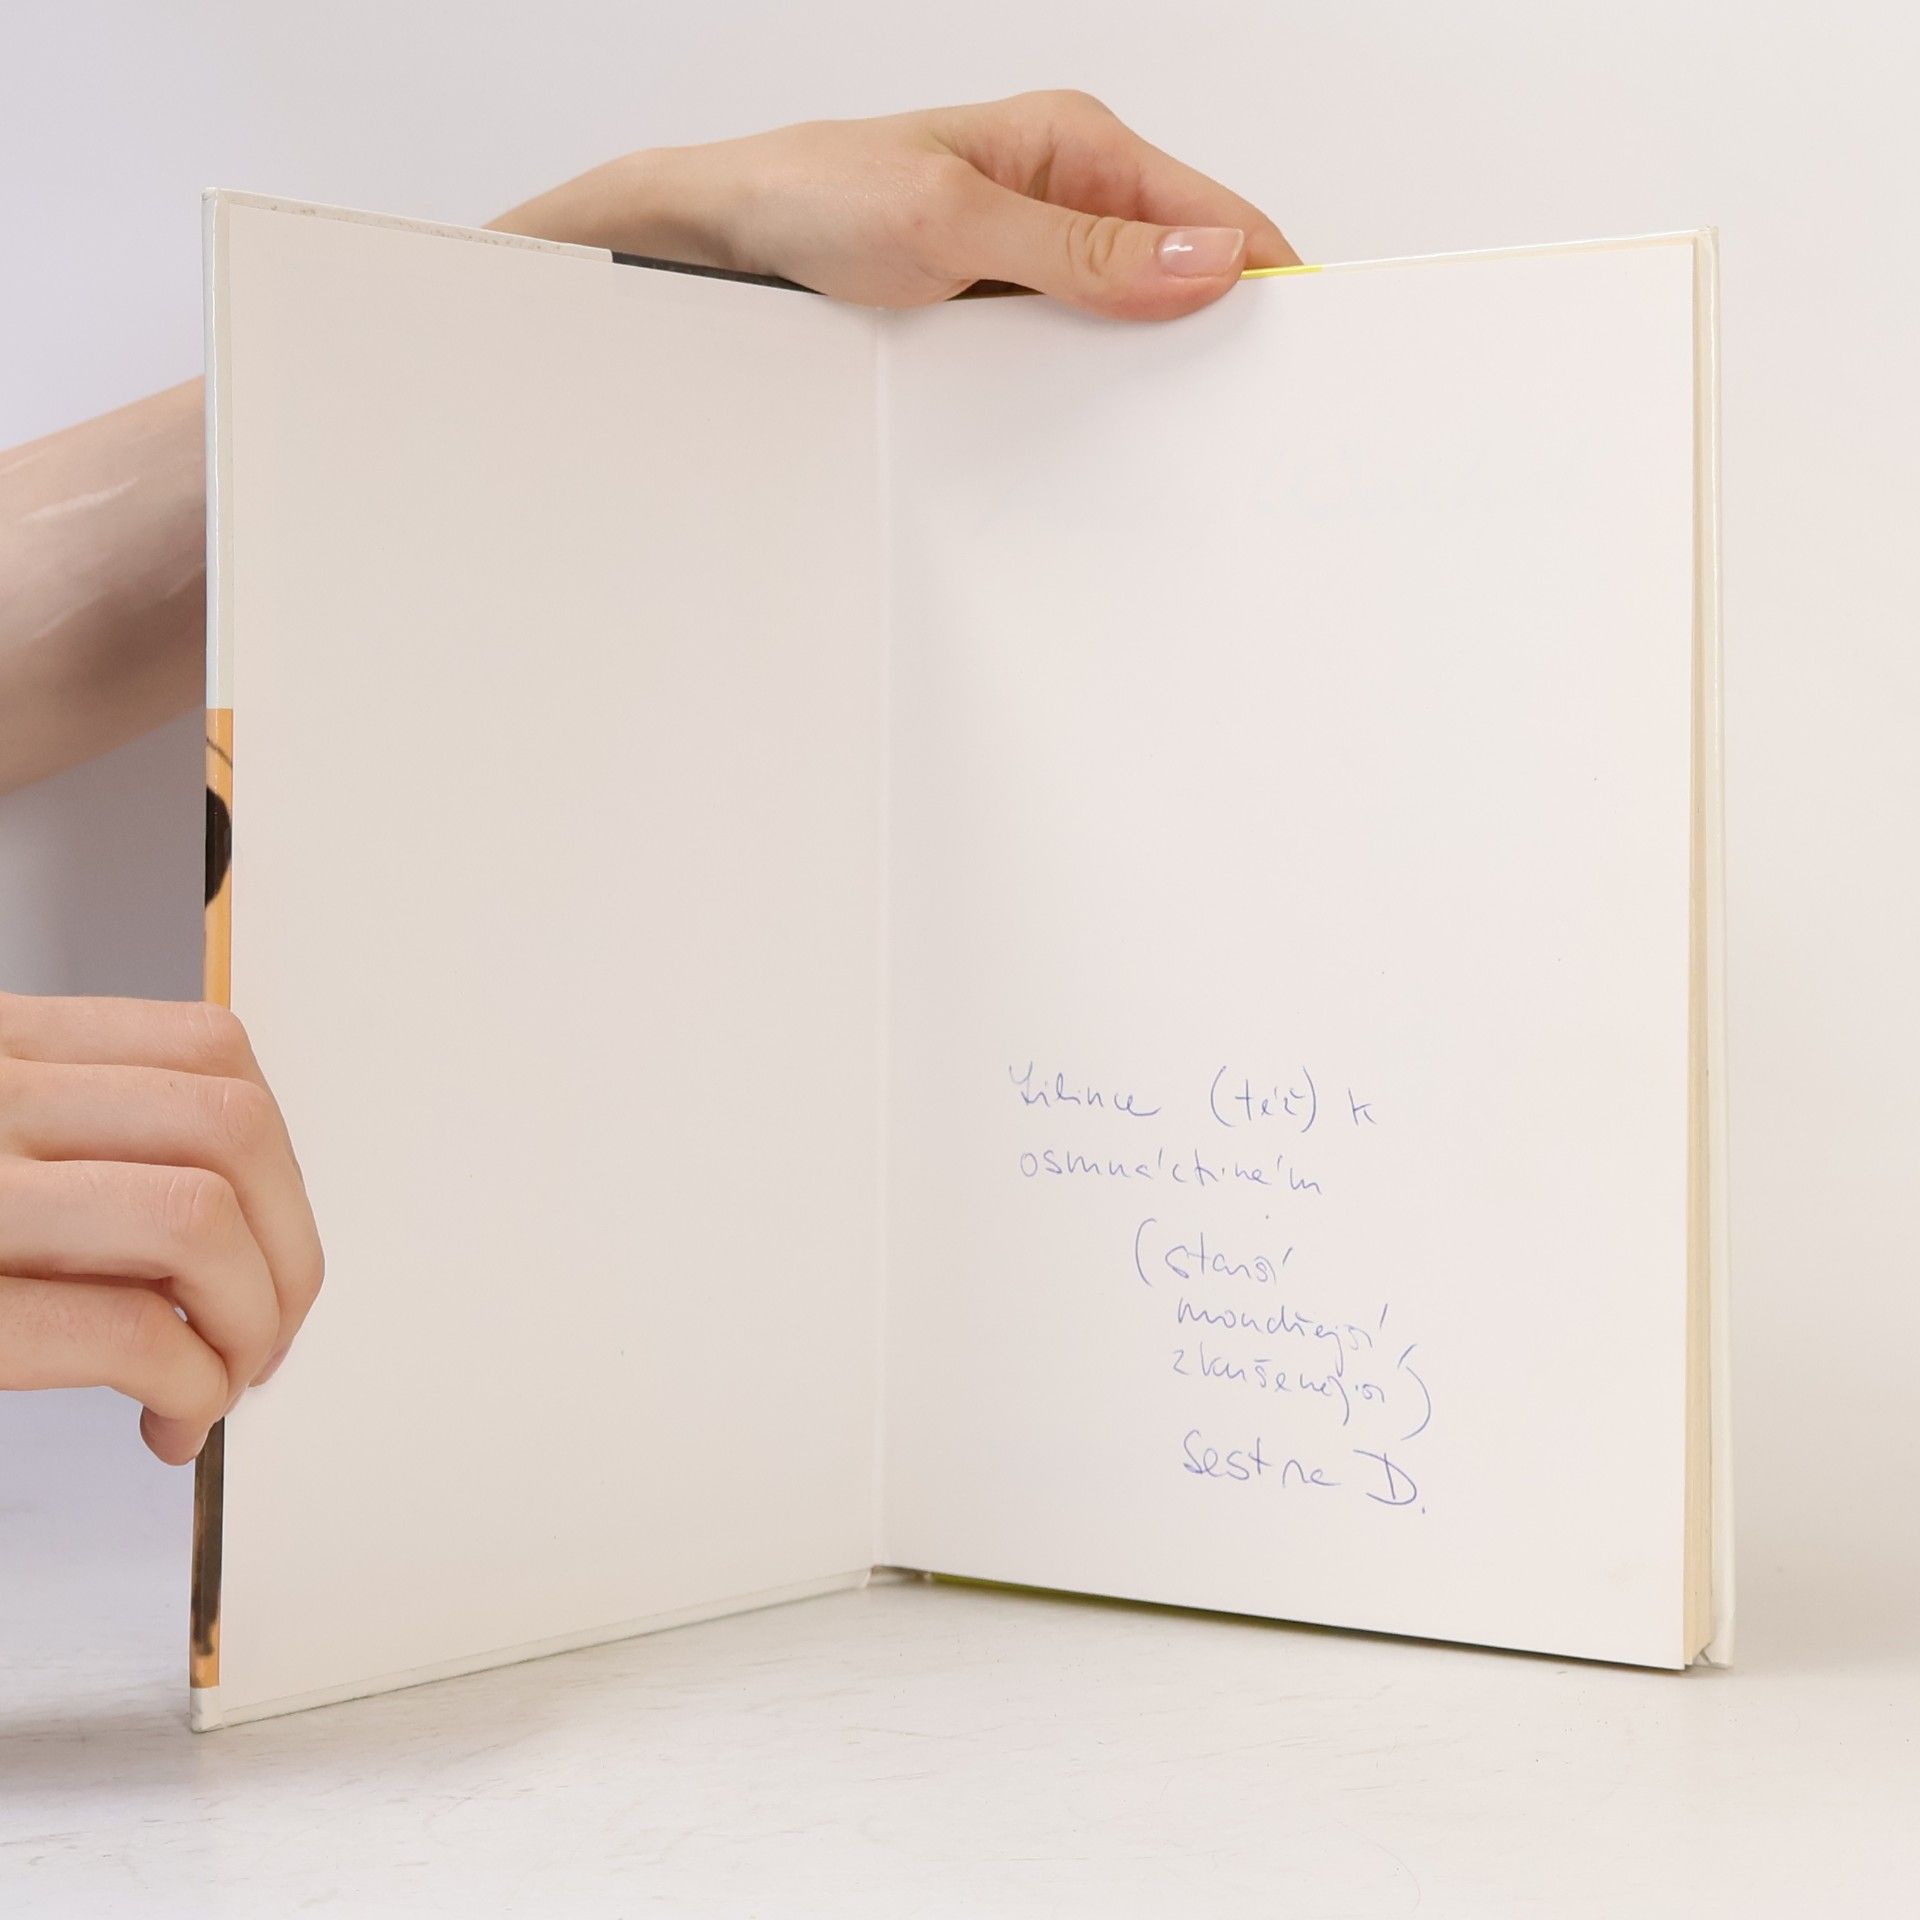 Lilince (též) k
osmnáctinám
(starší
moudřejší
zkušenější)
Sestra D.